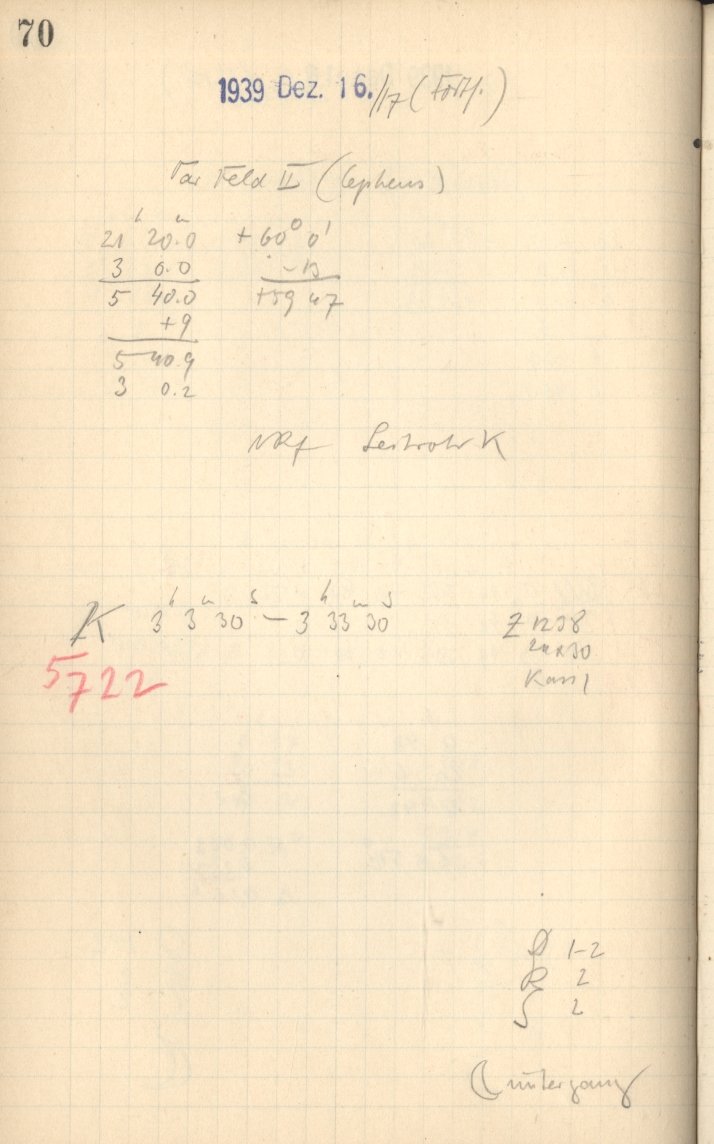 70
1939 Dez. 16./17 (Forts.)
Var Feld II (Cepheus)
21ʰ 20.ᵐ0 +60° 0'
3 0.0 -13
5 40.0 +59 47
+9
5 40.9
3 0.2
Leitrohr K
K 3ʰ 3ᵐ 30ˢ — 3ʰ 33ᵐ 30ˢ Z 1238
5722 24x30
Kass 1
D 1-2
R 2
S 2
☾untergang